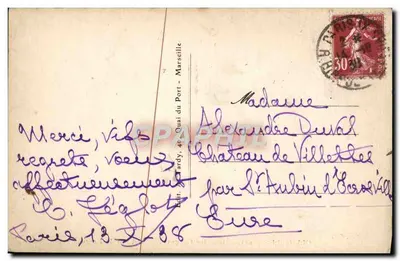 Merci, vifs
regrets, voeux,
affectueusement
Paris, 13
Quai du Port - Marseille
30
Madame
Alexandre Duval
Chateau de Villettes
par St Aubin d'Ecrosville
Eure